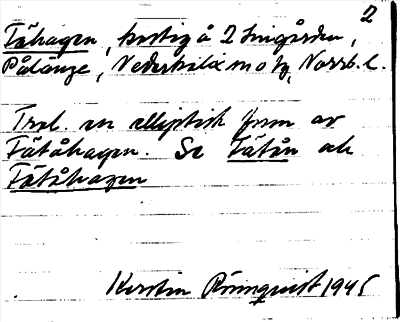 2
Tåhagen, hustig å 2 Smigården,
Pålänge, Nederkalix sn o tg, Norrb. l.
Trol. en elliptisk form av
Fätåhagen. Se Fätån och
Fätåhagen
Kerstin Rönnquist 1945